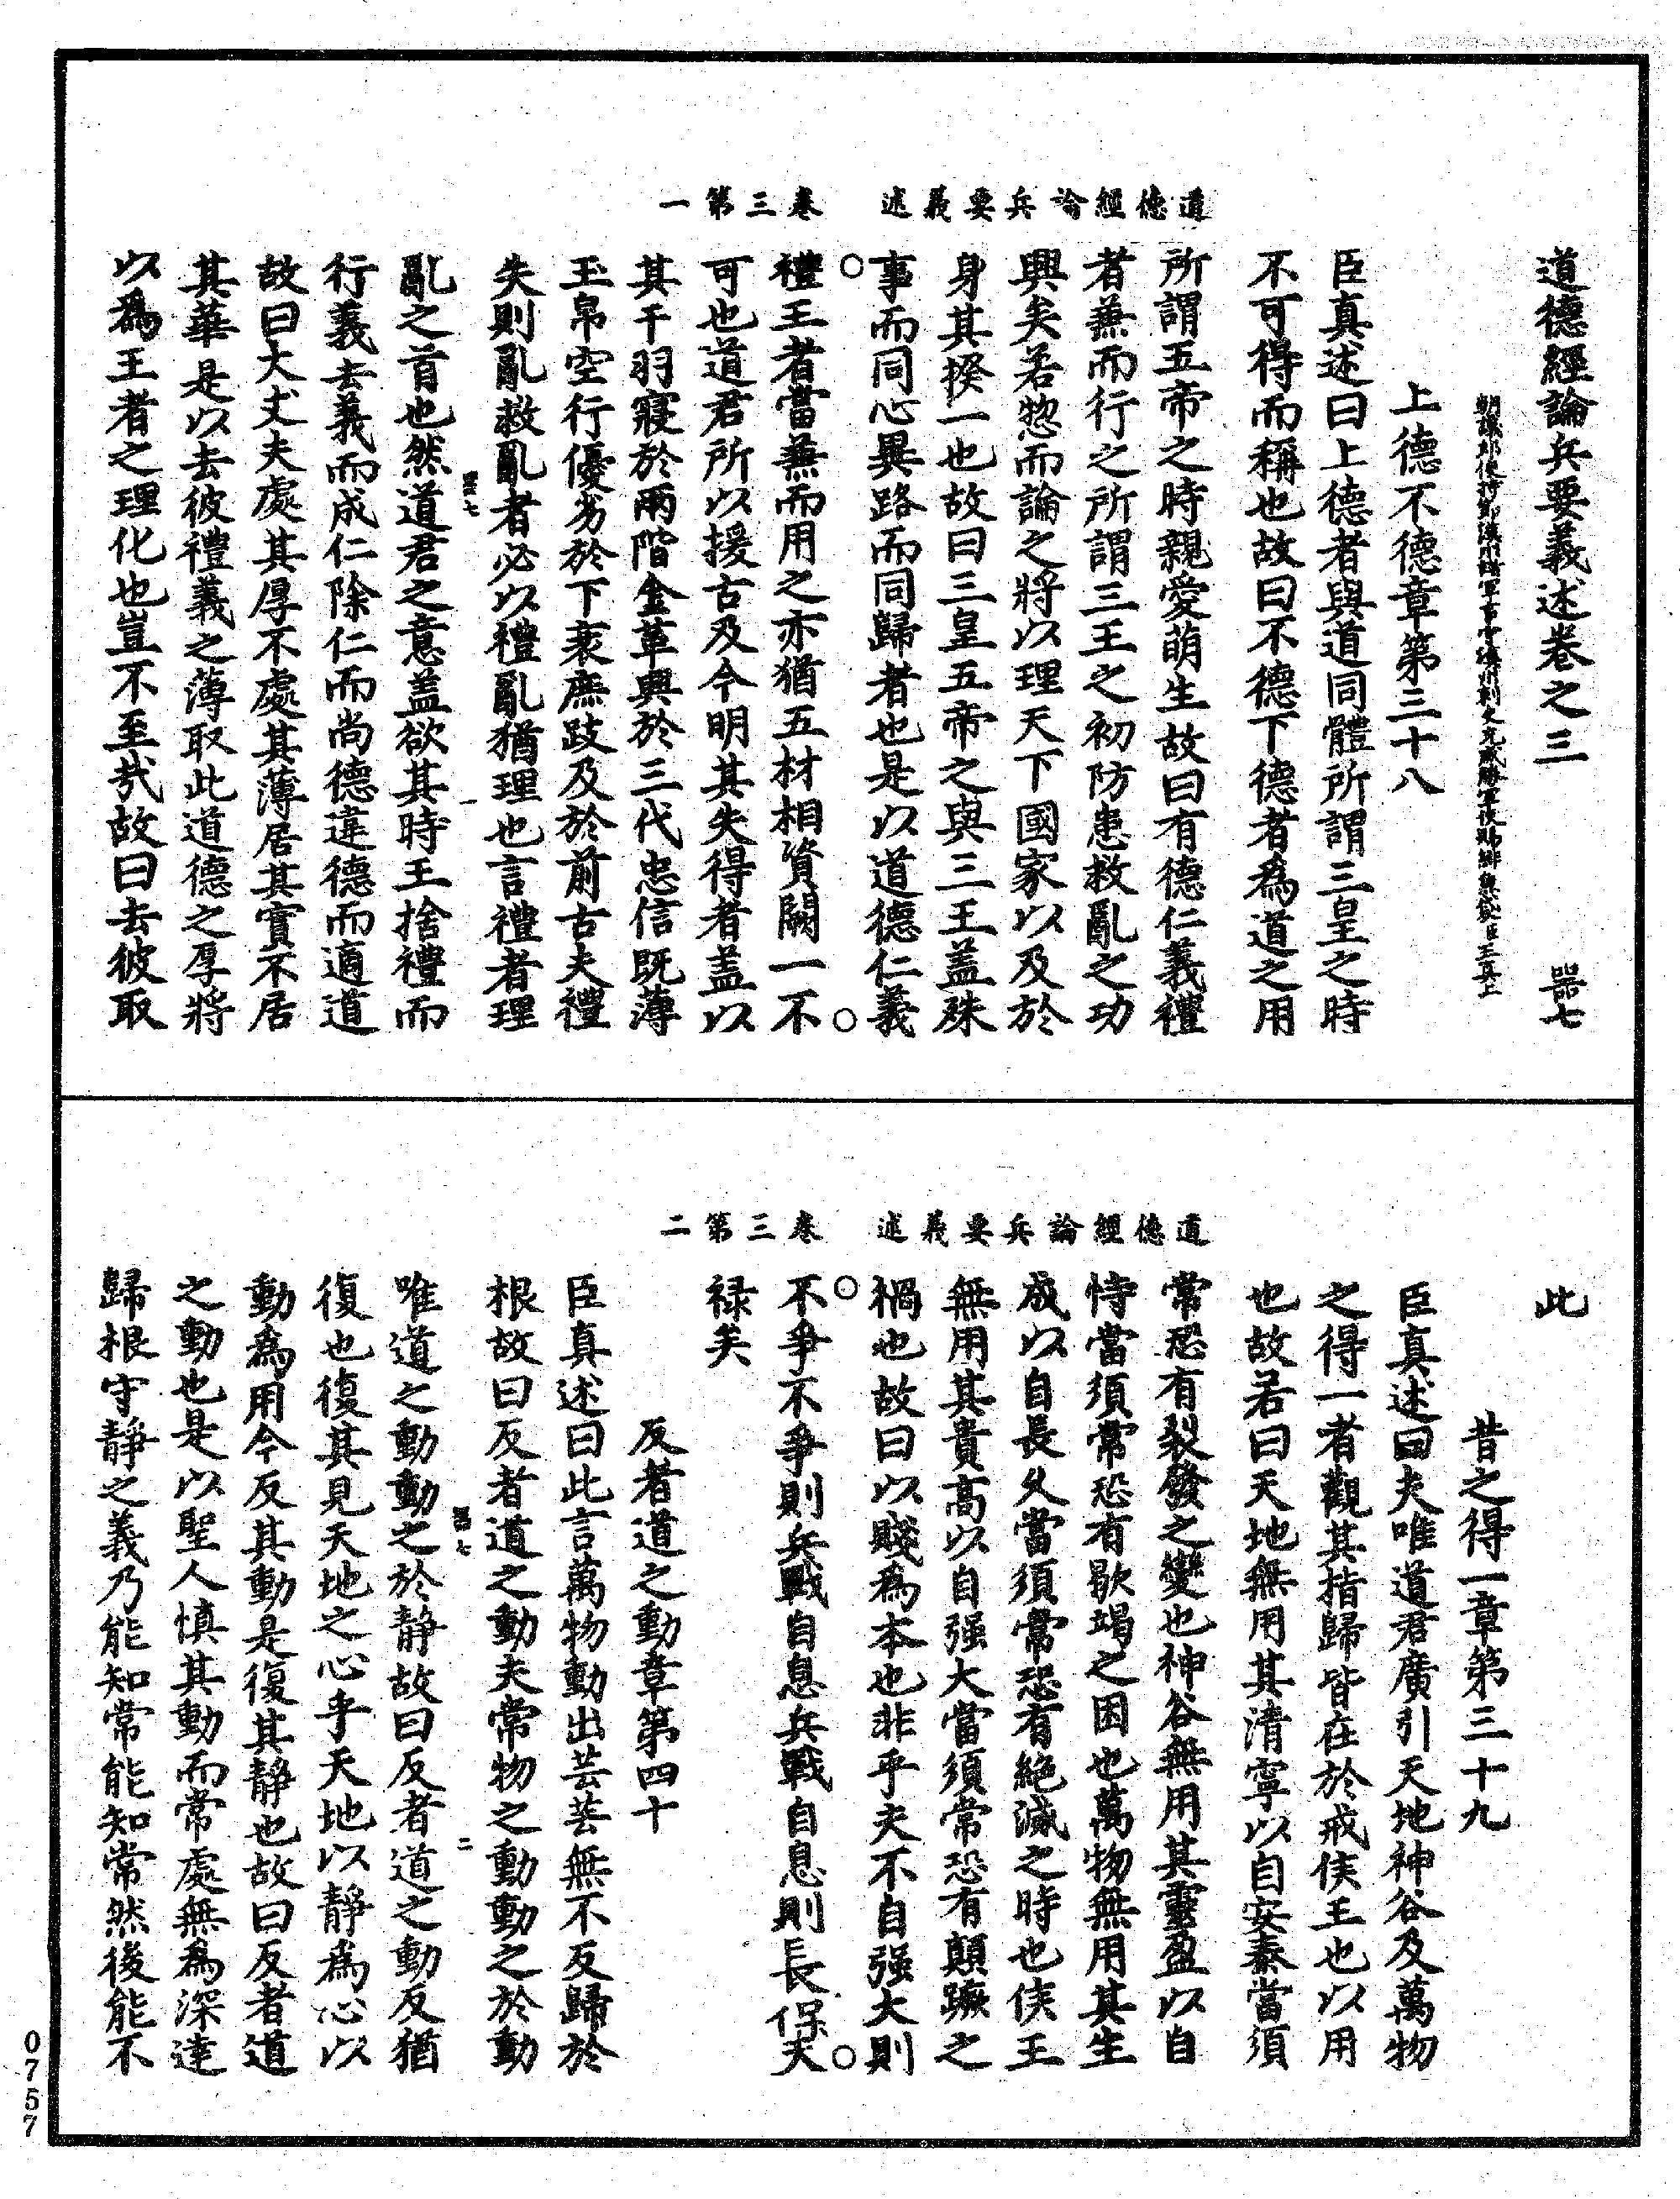 道德經論兵要義述卷之三　器七
朝議郎使持節漢州諸軍事守漢州刺史充威勝軍使賜緋魚袋臣王真上
上德不德章第三十八
臣真述曰上德者與道同體所謂三皇之時
不可得而稱也故曰不德下德者為道之用
所謂五帝之時親愛萌生故曰有德仁義禮
者兼而行之所謂三王之初防患救亂之功
興矣若惣而論之將以理天下國家以及於
身其揆一也故曰三皇五帝之與三王蓋殊
事而同心異路而同歸者也是以道德仁義
道德經論兵要義述　卷三第一
禮王者當兼而用之亦猶五材相資闕一不
可也道君所以援古及今明其失得者蓋以
其干羽寢於兩階金革興於三代忠信既薄
玉帛空行優劣於下衷庶跂及於前古夫禮
失則亂救亂者必以禮亂猶理也言禮者理
亂之首也然道君之意蓋欲其時王捨禮而
行義去義而成仁除仁而尚德違德而適道
故曰大丈夫處其厚不處其薄居其實不居
其華是以去彼禮義之薄取此道德之厚將
以為王者之理化也豈不至哉故曰去彼取
此
昔之得一章第三十九
臣真述曰夫唯道君廣引天地神谷及萬物
之得一者觀其指歸皆在於戒侯王也以用
也故若曰天地無用其清寧以自安泰當須
常恐有裂發之變也神谷無用其靈盈以自
恃當須常恐有歇竭之困也萬物無用其生
成以自長久當須常恐有絕滅之時也侯王
無用其貴高以自强大當須常恐有顛蹶之
禍也故曰以賤為本也非乎夫不自强大則
道德經論兵要義述　卷三第二
不爭不爭則兵戰自息兵戰自息則長保天
祿矣
反者道之動章第四十
臣真述曰此言萬物動出芸芸無不反歸於
根故曰反者道之動夫常物之動動之於動
唯道之動動之於靜故曰反者道之動反猶
復也復其見天地之心乎天地以靜為心以
動為用今反其動是復其靜也故曰反者道
之動也是以聖人慎其動而常處無為深達
歸根守靜之義乃能知常能知常然後能不
0757